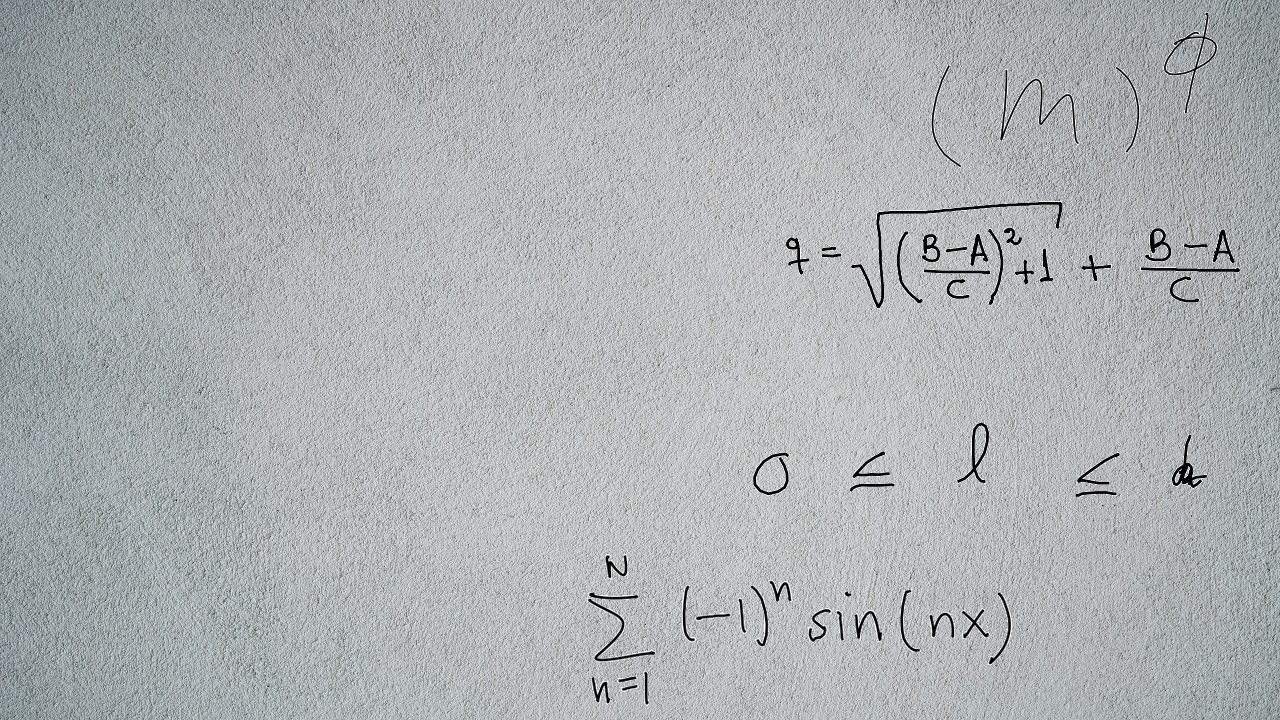 (m)^ϕ
q = √((B-A)/C)²+1 + (B-A)/C
0 ≤ l ≤
∑_{n=1}^{N} (-1)^n sin(nx)